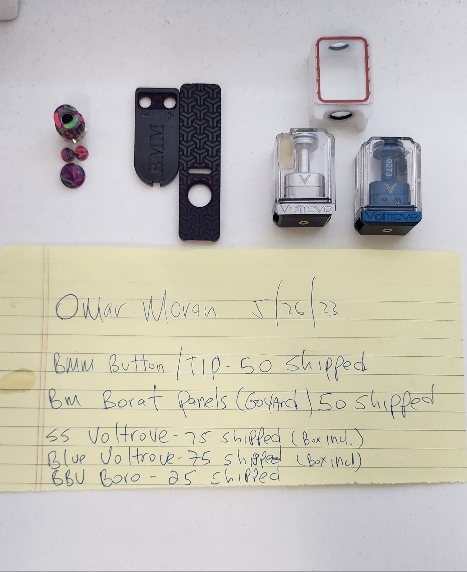 BMM
0273
Voltrove
Voltrove
Omar Moran 5/26/23
BMM Button/TIP - 50 Shipped
BM Borat Panels (Goyard) 50 Shipped
SS Voltrove - 75 shipped (Box incl.)
Blue Voltrove - 75 shipped (Box incl)
BBV Boro - 25 shipped